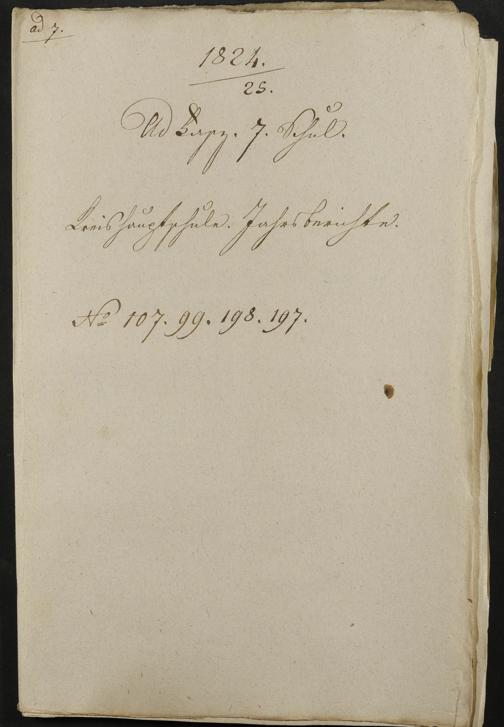 ad 7.
1824.
25.
Ad Kapz. 7. Schul.
Kreishauptschule. Jahrsberichte.
No 107. 99. 198. 197.